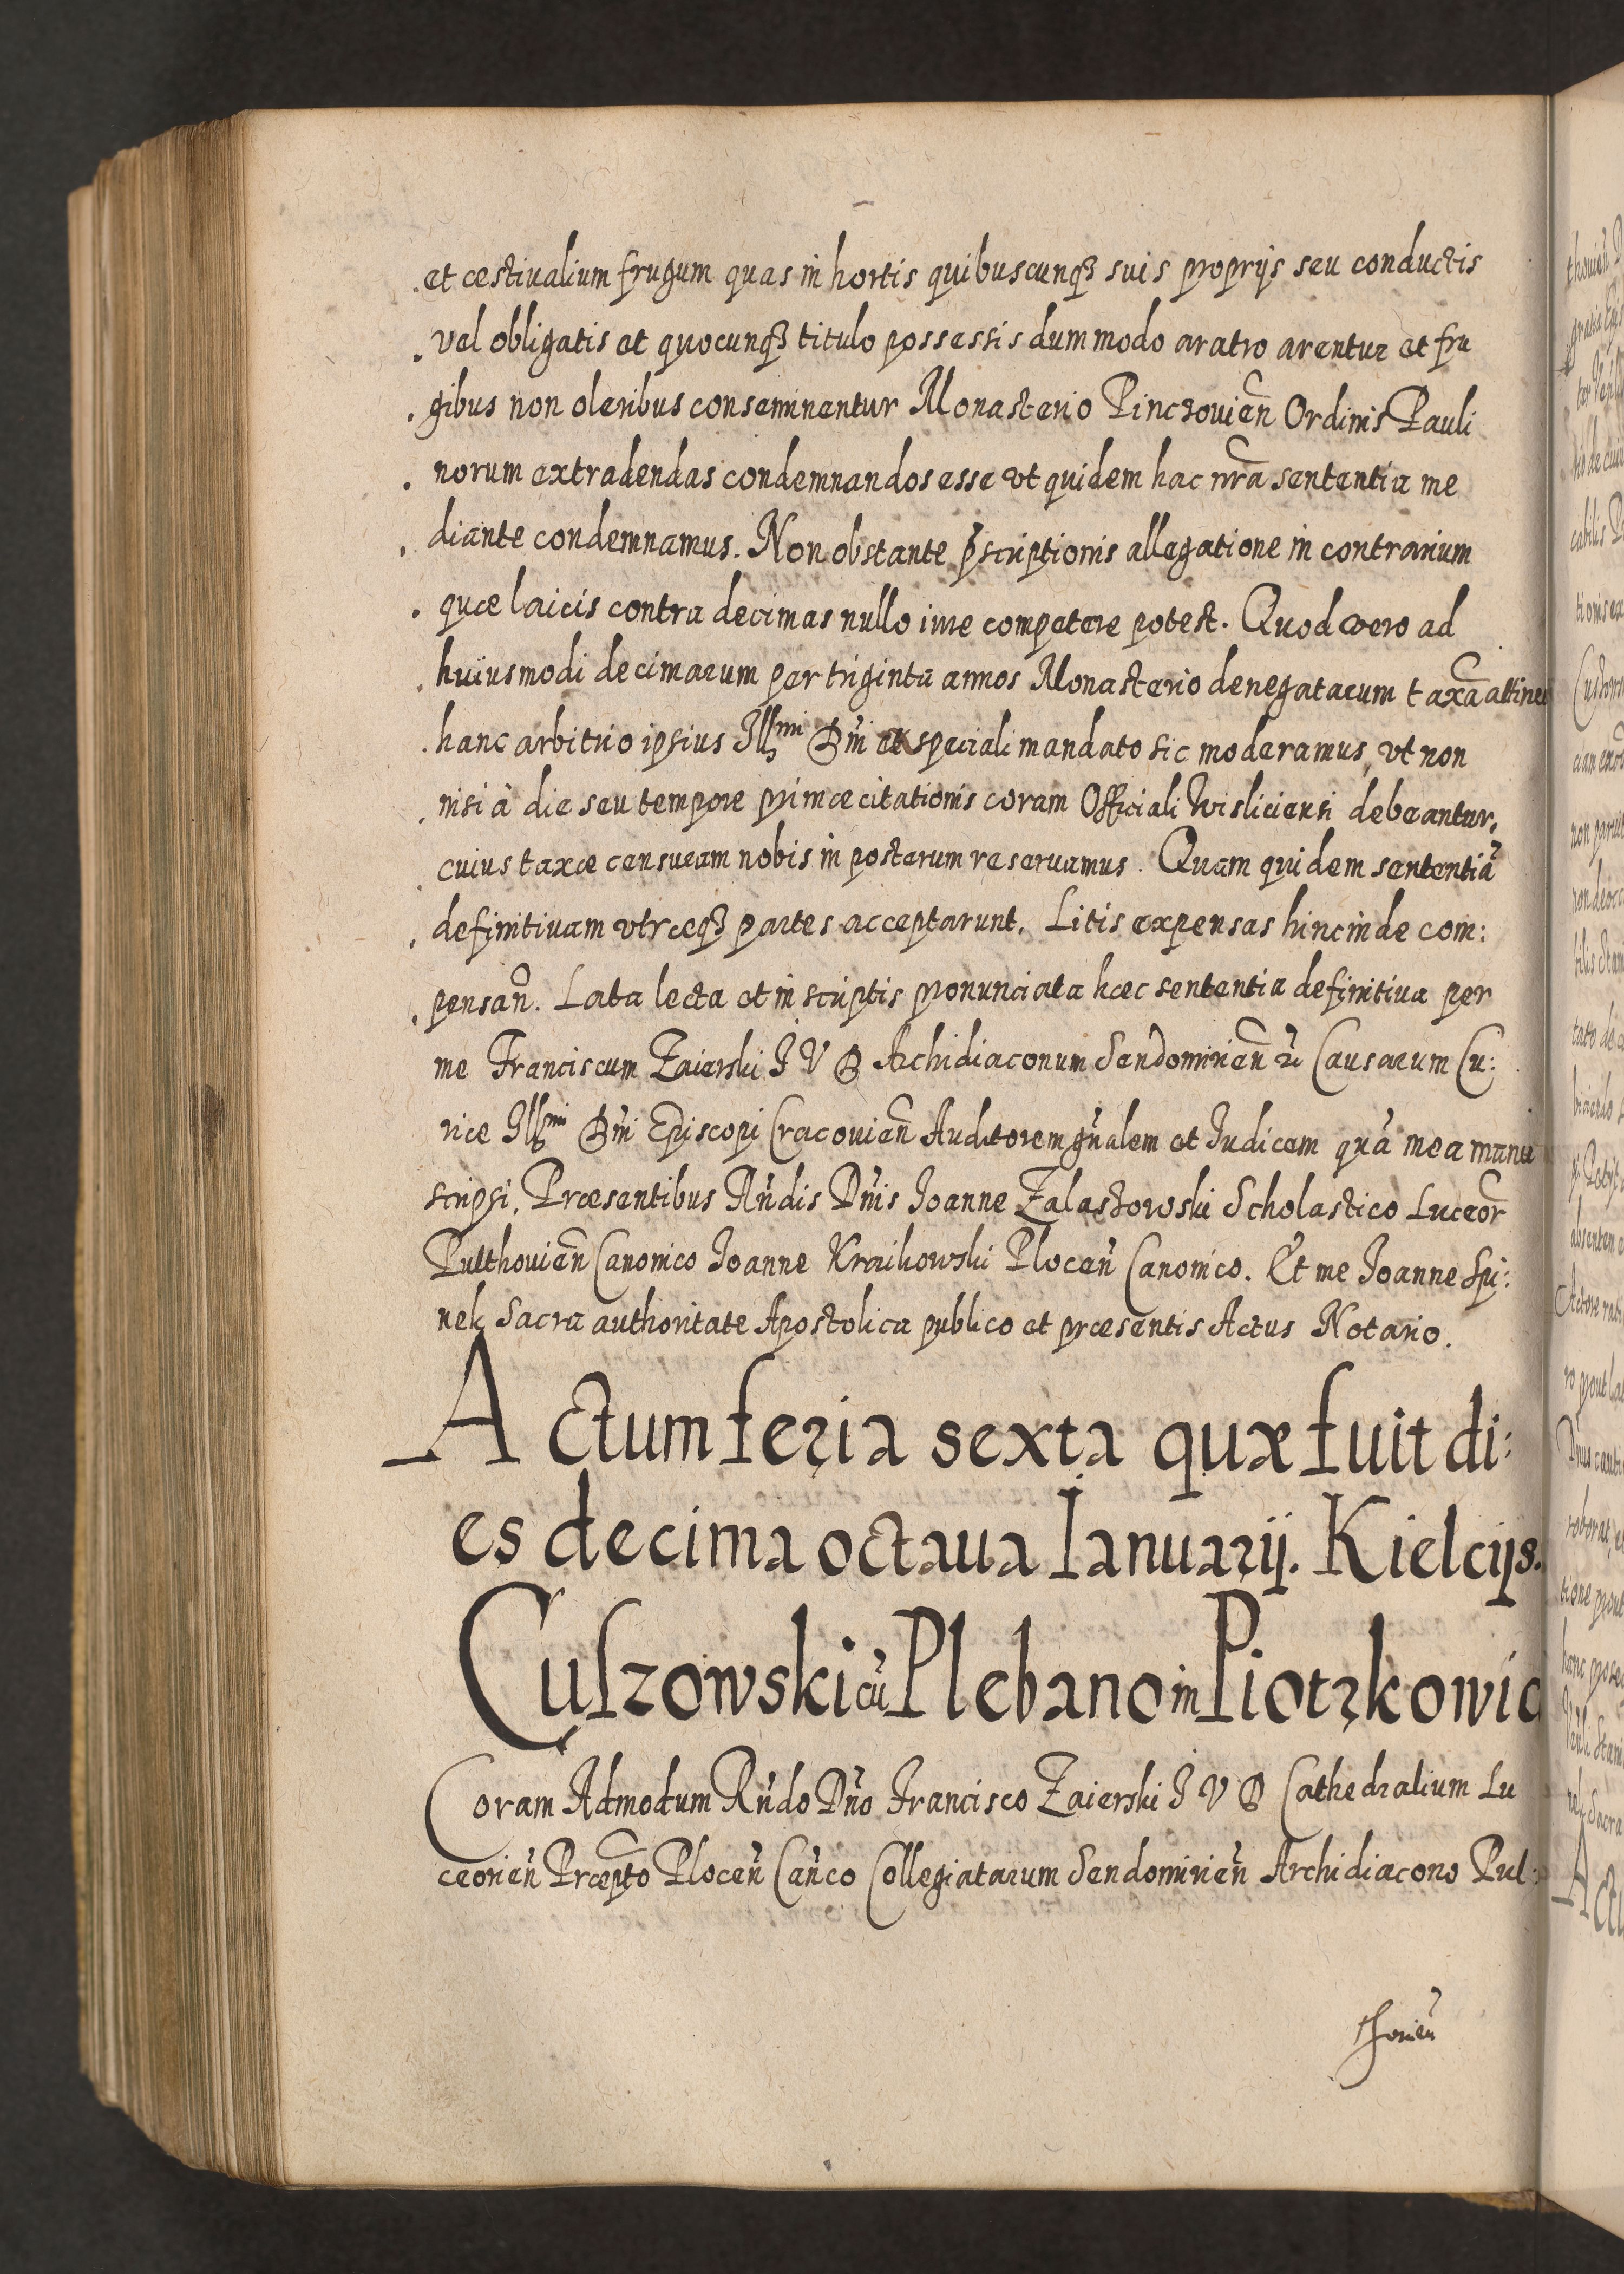 et æstiualium frugum quas in hortis quibuscunqꝫ suis proprijs seu conductis
vel obligatis et quocunqꝫ titulo possessis dummodo aratro arentur et fru
gibus non oleribus conseminentur Monasterio Pinczouien̄ Ordinis Pauli
norum extradendas condemnandos esse vt quidem hac nr̄a sententia me
diante condemnamus. Non obstante p̄scriptionis allegatione in contrarium
quæ laicis contra decimas nullo iure competere potest. Quod vero ad
huiusmodi decimarum per triginta annos Monasterio denegatarum taxā attinet
hanc arbitrio ipsius Illmi Dn̄i et speciali mandato sic moderamus, vt non
nisi à die seu tempore primæ citationis coram Officiali Wisliciensi debeantur,
cuius taxæ censuram nobis in posterum reseruamus. Quam quidem sententiā
definitiuam vtræqꝫ partes acceptarunt. Litis expensas hincinde com:
pensan̄. Lata lecta et in scriptis pronunciata hæc sententia definitiua per
me Franciscum Zaierski I V D Archidiaconum Sendomirien̄ Causarum Cu:
riæ Illmi Dn̄i Episcopi Cracouien̄ Auditorem gn̄alem et Iudicem quā mea manu
scripsi. Præsentibus Rn̄dis Dn̄is Ioanne Zalaszowski Scholastico Luceor̄
Pulthouien̄ Canonico Ioanne Kraikowski Plocen̄ Canonico. Et me Ioanne Spi:
nek Sacra authoritate Apostolica publico et præsentis Actus Notario.
Actum feria sexta quæ fuit di:
es decima octaua Ianuarij. Kielcijs.
Culzowski cū Plebano in Piotrkowic
Coram Admodum Rn̄do Dn̄o Francisco Zaierski I V D Cathedralium Lu
ceorien̄ Præpto Plocen̄ Can̄co Collegiatarum Sendomirien̄ Archidiacono Pul:
thouien̄